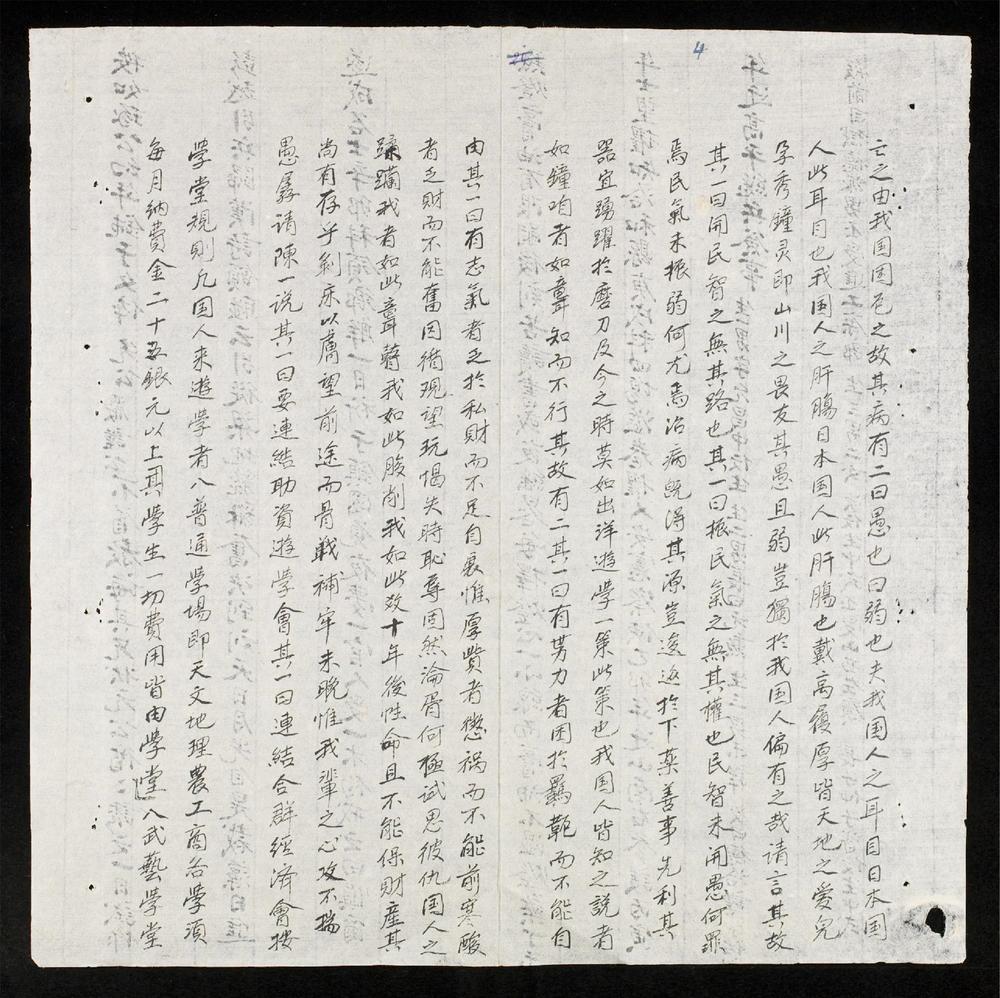 4
亡之由我国国危之故其病有二曰愚也曰弱也夫我国人之耳目日本国
人此耳目也我国人之肝腸日本国人此肝腸也戴高履厚皆天地之爱児
孕秀鐘灵即山川之畏友其愚且弱豈獨於我国人偏有之哉请言其故
其一曰開民智之無其路也其一曰振民氣之無其權也民智未開愚何罪
焉民氣未振弱何尤焉治病既得其源豈逡廵於下薬善事先利其
器宜踴躍於磨刀及今之時莫如出洋遊學一策此策也我国人皆知之説者
如鐘咱者如聾知而不行其故有二其一曰有势力者困於羈靶而不能自
由其一曰有志氣者乏於私財而不足自裹惟厚貲者懲祸而不能前寒酸
者乏財而不能奮因循現望玩愒失時恥辱固然淪胥何極試思彼仇国人之
蹂躏我者如此聾瞽我如此朘削我如此数十年後性命且不能保財產其
尚有存乎剝床以膚望前途而骨戰補牢未晚惟我輩之心攻不揣
愚孱请陳一说其一曰要連結助資遊學會其一曰連結合群經濟會按
學堂規則凡国人来遊學者八普通學場即天文地理農工商各學須
每月納費金二十五銀元以上其學生一切費用皆由學堂八武藝學堂